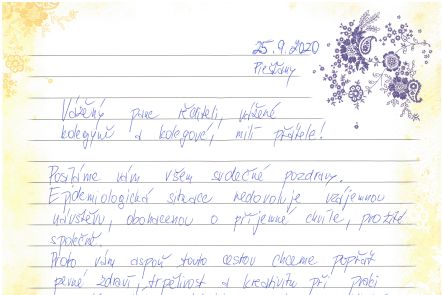 25.9.2020
Piešťany
Vážený pane řediteli, vážené
kolegyně a kolegové, milí přátelé!
Posíláme vám všem srdečné pozdravy.
Epidemiologická situace nedovoluje vzájemnou
návštěvu, obohacenou o příjemné chvíle, prožité
společně.
Proto vám aspoň touto cestou chceme popřát
pevné zdraví, trpělivost a kreativitu při práci